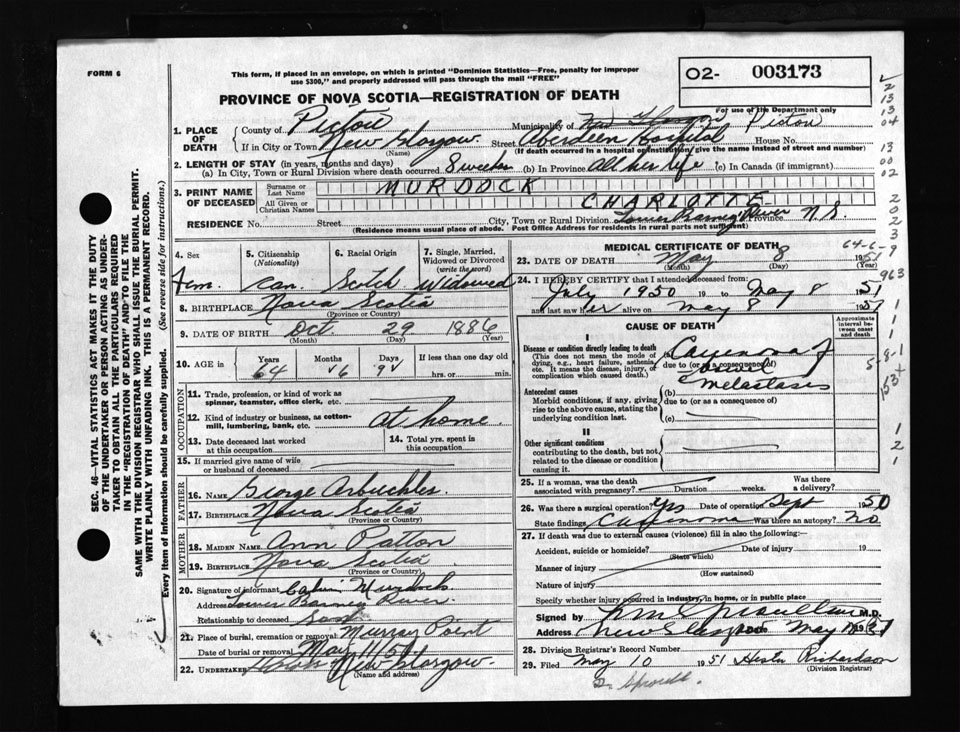 FORM 6
This form, if placed in an envelope, on which is printed "Dominion Statistics—Free, penalty for improper
use $300," and properly addressed will pass through the mail "FREE"
O2- 003173
For use of the Department only
PROVINCE OF NOVA SCOTIA—REGISTRATION OF DEATH
1. PLACE OF DEATH
County of Pictou Municipality of New Glasgow Pictou
If in City or Town New Glasgow. Street Aberdeen Hospital House No.
(Name) (If death occurred in a hospital or institution, give the name instead of street and number)
2. LENGTH OF STAY (in years, months and days)
(a) In City, Town or Rural Division where death occurred 8 weeks (b) In Province All her life (c) In Canada (if immigrant)
3. PRINT NAME OF DECEASED
Surname or Last Name MURDOCK
All Given or Christian Names CHARLOTTE
RESIDENCE No. Street City, Town or Rural Division Lower Barney River Province N.S.
(Residence means usual place of abode. Post Office Address for residents in rural parts not sufficient)
4. Sex Fem.
5. Citizenship (Nationality) Can.
6. Racial Origin Scotch
7. Single, Married, Widowed or Divorced (write the word) Widowed
8. BIRTHPLACE Nova Scotia
(Province or Country)
9. DATE OF BIRTH Oct 29 1886
(Month) (Day) (Year)
10. AGE in Years 64 Months 6 Days 9 If less than one day old hrs. or min.
OCCUPATION
11. Trade, profession, or kind of work as
spinner, teamster, office clerk, etc.
12. Kind of industry or business, as cotton-
mill, lumbering, bank, etc. at home.
13. Date deceased last worked
at this occupation
14. Total yrs. spent in
this occupation
15. If married give name of wife
or husband of deceased
FATHER
16. NAME George Arbuckles
17. BIRTHPLACE Nova Scotia
(Province or Country)
MOTHER
18. MAIDEN NAME Ann Patton
19. BIRTHPLACE Nova Scotia
(Province or Country)
20. Signature of informant Calvin Murdock
Address Lower Barney River.
Relationship to deceased Son
21. Place of burial, cremation or removal Murray Point
Date of burial or removal May 11/51
22. UNDERTAKER New Glasgow.
(Name and address)
MEDICAL CERTIFICATE OF DEATH
64-6-9
23. DATE OF DEATH May 8 1951
(Month) (Day) (Year)
24. I HEREBY CERTIFY that I attended deceased from:
July 1950 19 to May 8 1951
and last saw her alive on May 8 1951
CAUSE OF DEATH
Approximate interval between onset and death
I
Disease or condition directly leading to death
(This does not mean the mode of
dying, e.g., heart failure, asthenia,
etc. It means the disease, injury, or
complication which caused death.)
due to (or as a consequence of)
metastases
Antecedent causes
Morbid conditions, if any, giving
rise to the above cause, stating the
underlying condition last.
(b)
due to (or as a consequence of)
(c)
II
Other significant conditions
contributing to the death, but not
related to the disease or condition
causing it.
25. If a woman, was the death
associated with pregnancy? Duration weeks. Was there
a delivery?
26. Was there a surgical operation? Yes Date of operation Sept 1950
State findings Carcinoma Was there an autopsy? No
27. If death was due to external causes (violence) fill in also the following:
Accident, suicide or homicide? Date of injury 19
(State which)
Manner of injury
(How sustained)
Nature of injury
Specify whether injury occurred in industry, in home, or in public place
Signed by M.D.
Address New Glasgow Date May
28. Division Registrar's Record Number
29. Filed May 10 1951 Hester Richardson
(Division Registrar)
Dr Sproull.
SEC. 46—VITAL STATISTICS ACT MAKES IT THE DUTY
OF THE UNDERTAKER OR PERSON ACTING AS UNDER-
TAKER TO OBTAIN ALL THE PARTICULARS REQUIRED
IN THE "REGISTRATION OF DEATH" AND TO FILE THE
SAME WITH THE DIVISION REGISTRAR WHO SHALL ISSUE THE BURIAL PERMIT.
WRITE PLAINLY WITH UNFADING INK. THIS IS A PERMANENT RECORD.
Every item of information should be carefully supplied. (See reverse side for instructions.)
2
13
13
04
13
00
02
2
0
2
3
9
963
1
1
1
1
5-8-1
1
2
1